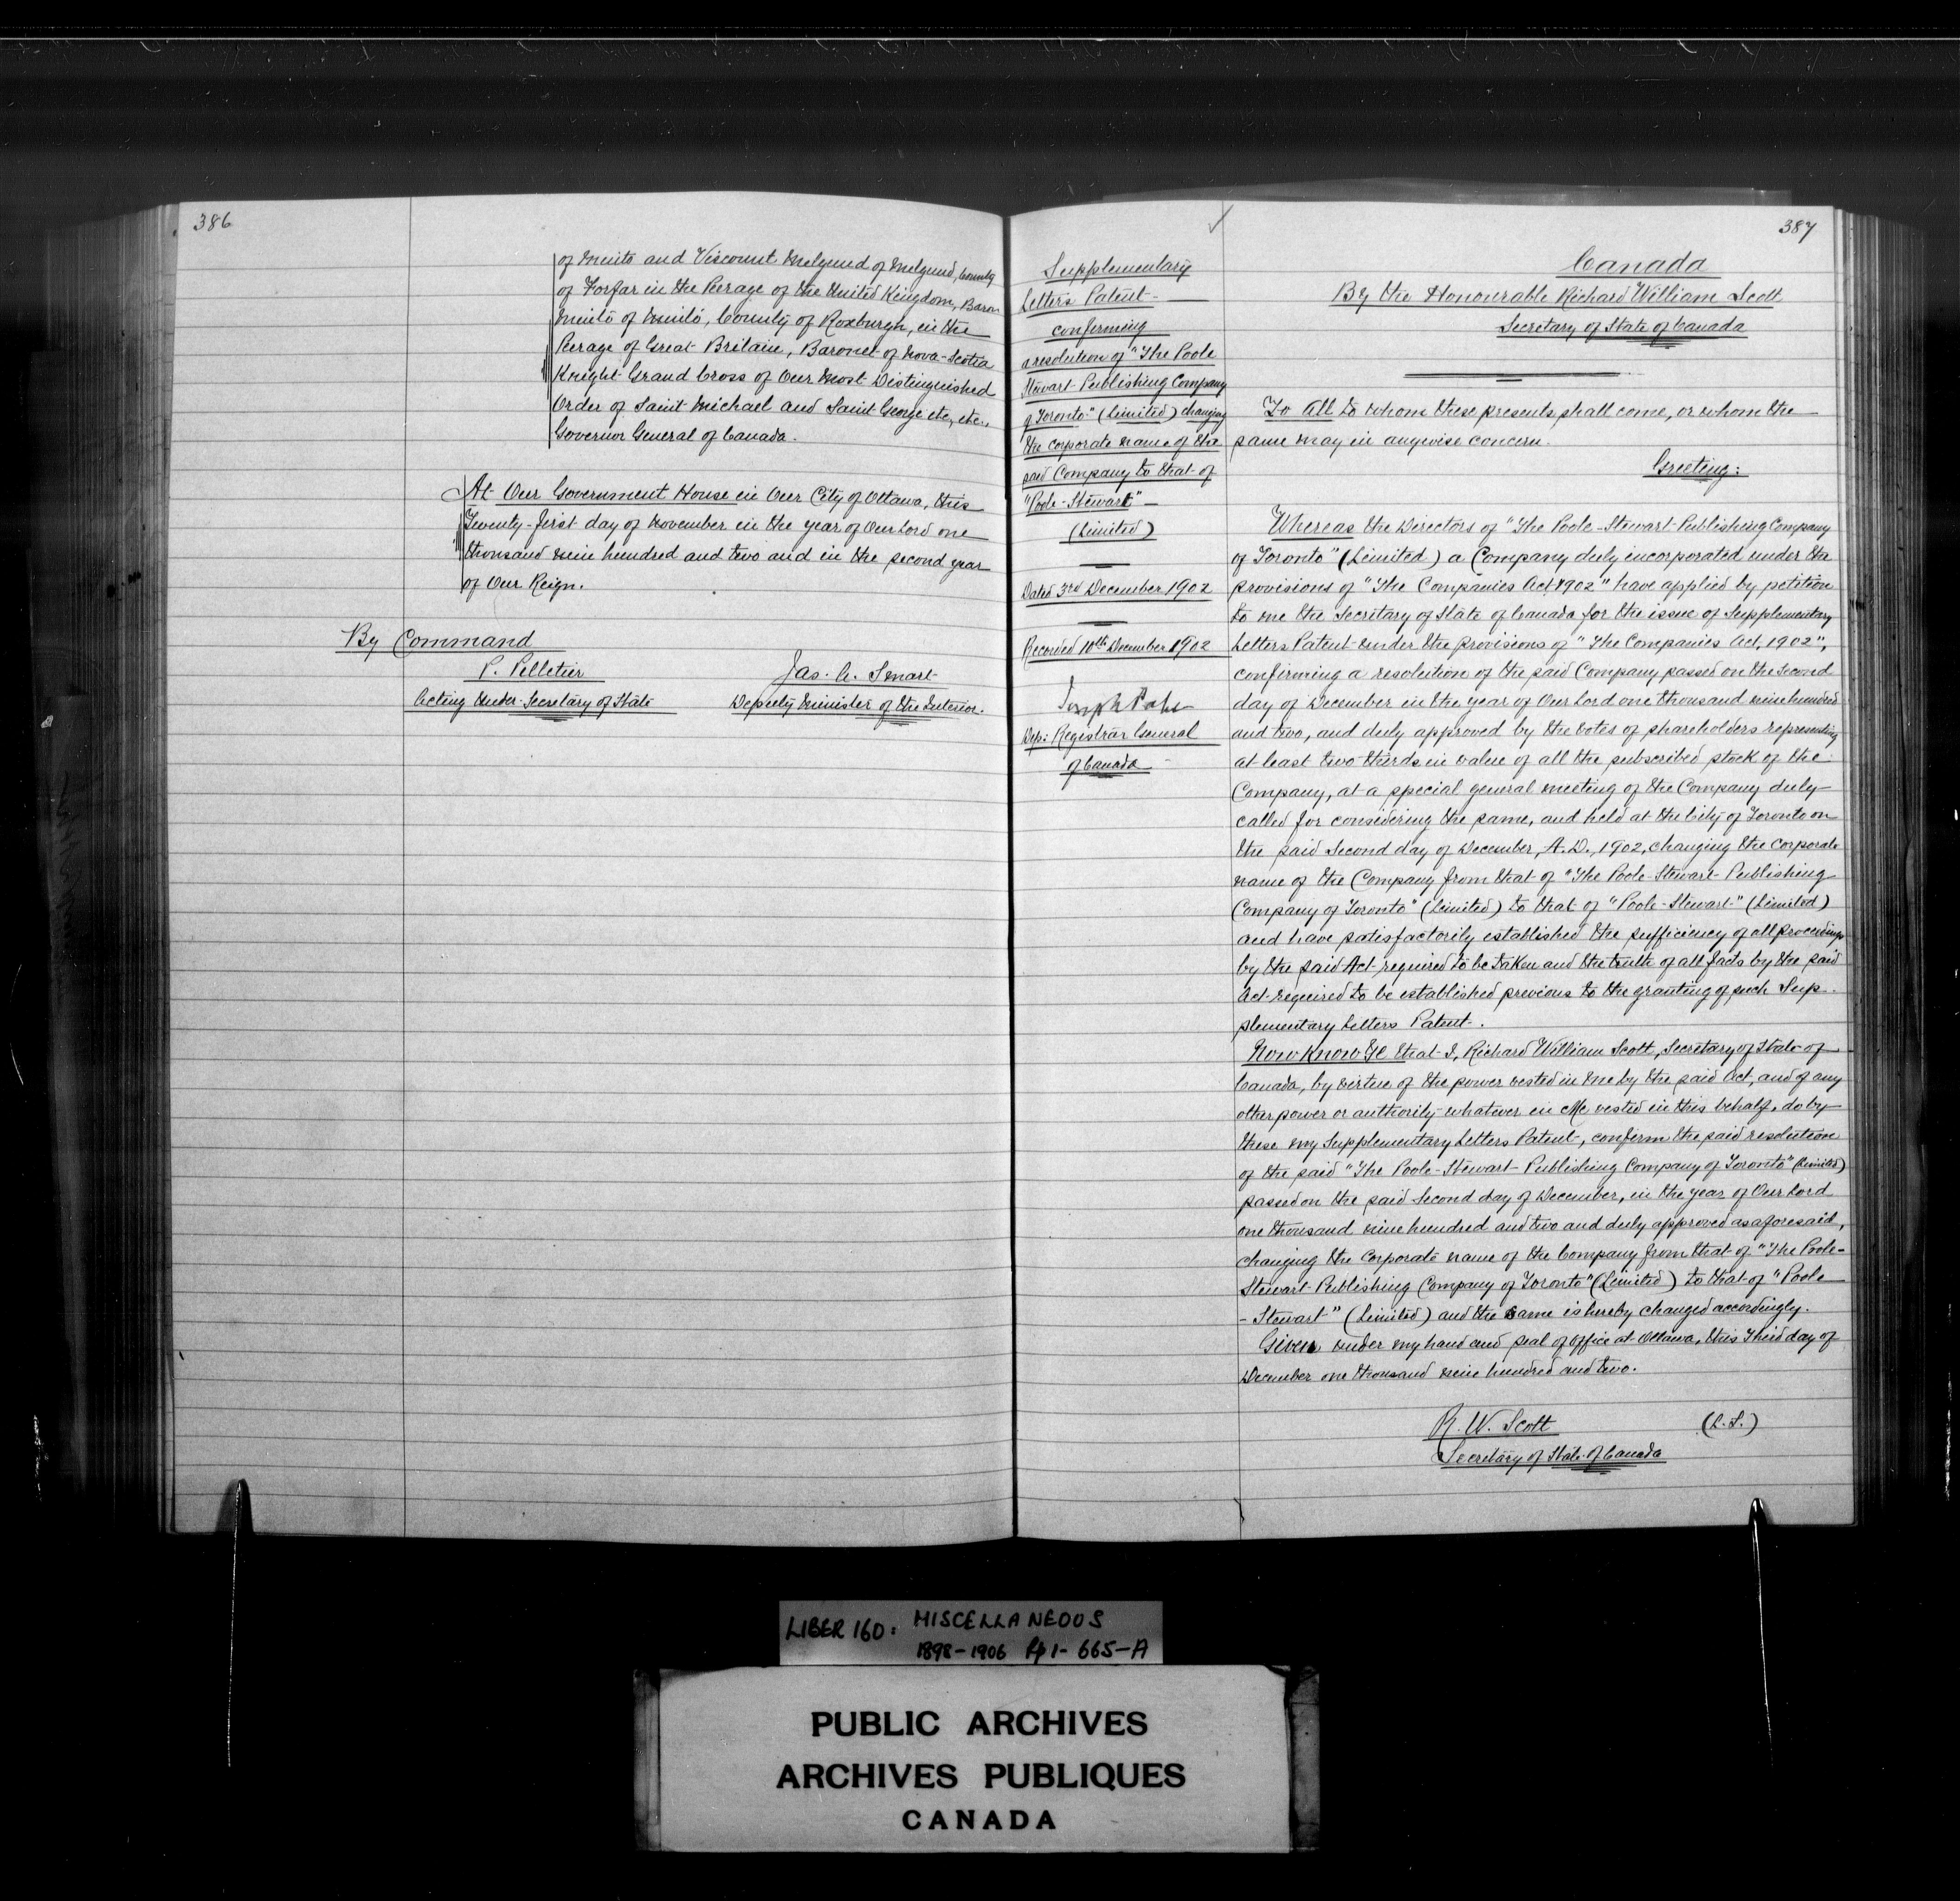 386
of Minto and Viscount Melgund of Melgund, County
of Forfar in the Peerage of the United Kingdom, Baron
Minto of Minto, County of Roxburgh, in the
Peerage of Great Britain, Baronet of Nova-Scotia
Knight Grand Cross of Our Most Distinguished
Order of Saint Michael and Saint George etc., etc.,
Governor General of Canada.
At Our Government House in Our City of Ottawa, this
Twenty-first day of November in the year of Our Lord one
thousand nine hundred and two and in the second year
of Our Reign.
By Command
P. Pelletier
Acting Under-Secretary of State
Jas. A. Smart
Deputy Minister of the Interior.
387
Supplementary
Letters Patent
confirming
a resolution of "The Poole
Stewart Publishing Company
of Toronto" (Limited) changing
the corporate name of the
said Company to that of
"Poole-Stewart"
(Limited)
Dated 3rd December 1902
Recorded 10th December 1902
Joseph Pope
Dep: Registrar General
of Canada
Canada
By the Honourable Richard William Scott
Secretary of State of Canada
To All to whom these presents shall come, or whom the
same may in anywise concern.
Greeting:
Whereas the Directors of "The Poole-Stewart Publishing Company
of Toronto" (Limited) a Company duly incorporated under the
provisions of "The Companies Act, 1902" have applied by petition
to me the Secretary of State of Canada for the issue of Supplementary
Letters Patent under the provisions of "The Companies Act, 1902",
confirming a resolution of the said Company passed on the Second
day of December in the year of Our Lord one thousand nine hundred
and two, and duly approved by the votes of shareholders representing
at least two thirds in value of all the subscribed stock of the
Company, at a special general meeting of the Company duly
called for considering the same, and held at the City of Toronto on
the said Second day of December, A.D., 1902, changing the corporate
name of the Company from that of "The Poole-Stewart Publishing
Company of Toronto" (Limited) to that of "Poole-Stewart" (Limited)
and have satisfactorily established the sufficiency of all proceedings
by the said Act required to be taken and the truth of all facts by the said
Act required to be established previous to the granting of such Sup-
plementary Letters Patent.
Now Know Ye that I, Richard William Scott, Secretary of State of
Canada, by virtue of the power vested in me by the said Act, and of any
other power or authority whatever in Me vested in this behalf, do by
these my Supplementary Letters Patent, confirm the said resolution
of the said "The Poole-Stewart Publishing Company of Toronto" (Limited)
passed on the said Second day of December, in the year of Our Lord
one thousand nine hundred and two and duly approved as aforesaid,
changing the Corporate name of the Company from that of "The Poole-
Stewart Publishing Company of Toronto" (Limited) to that of "Poole
-Stewart" (Limited) and the same is hereby changed accordingly.
Given under my hand and seal of office at Ottawa, this Third day of
December one thousand nine hundred and two.
R. W. Scott
(L.S.)
Secretary of State of Canada
LIBER 160: MISCELLANEOUS
1898-1906 Pp 1-665-A
PUBLIC ARCHIVES
ARCHIVES PUBLIQUES
CANADA